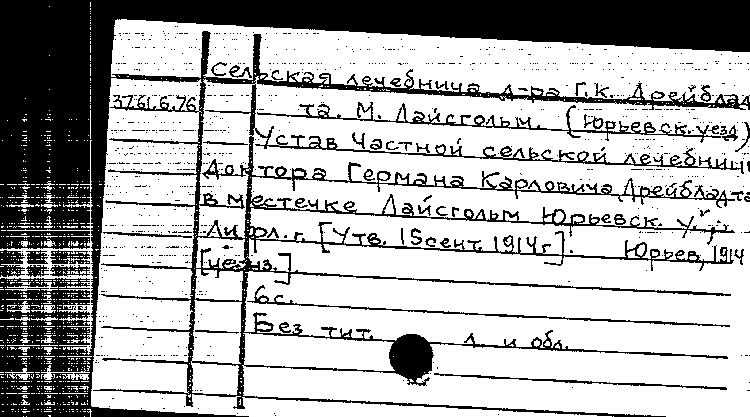 Сельская лечебница д-ра Г.К. Дрейблад
37.61.6.76 та. М. Лайсгольм. (Юрьевск. уезд)
Устав частной сельской лечебницы
Доктора Германа Карловича Дрейбладта
в местечке Лайсгольм Юрьевск. у.
Лифл. г. [Утв. 15 сент. 1914 г.]. Юрьев, 1914
[ценз.].
6 с.
Без тит. л. и обл.